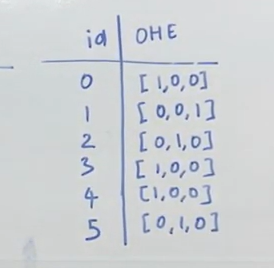 id OHE
0 [1,0,0]
1 [0,0,1]
2 [0,1,0]
3 [1,0,0]
4 [1,0,0]
5 [0,1,0]